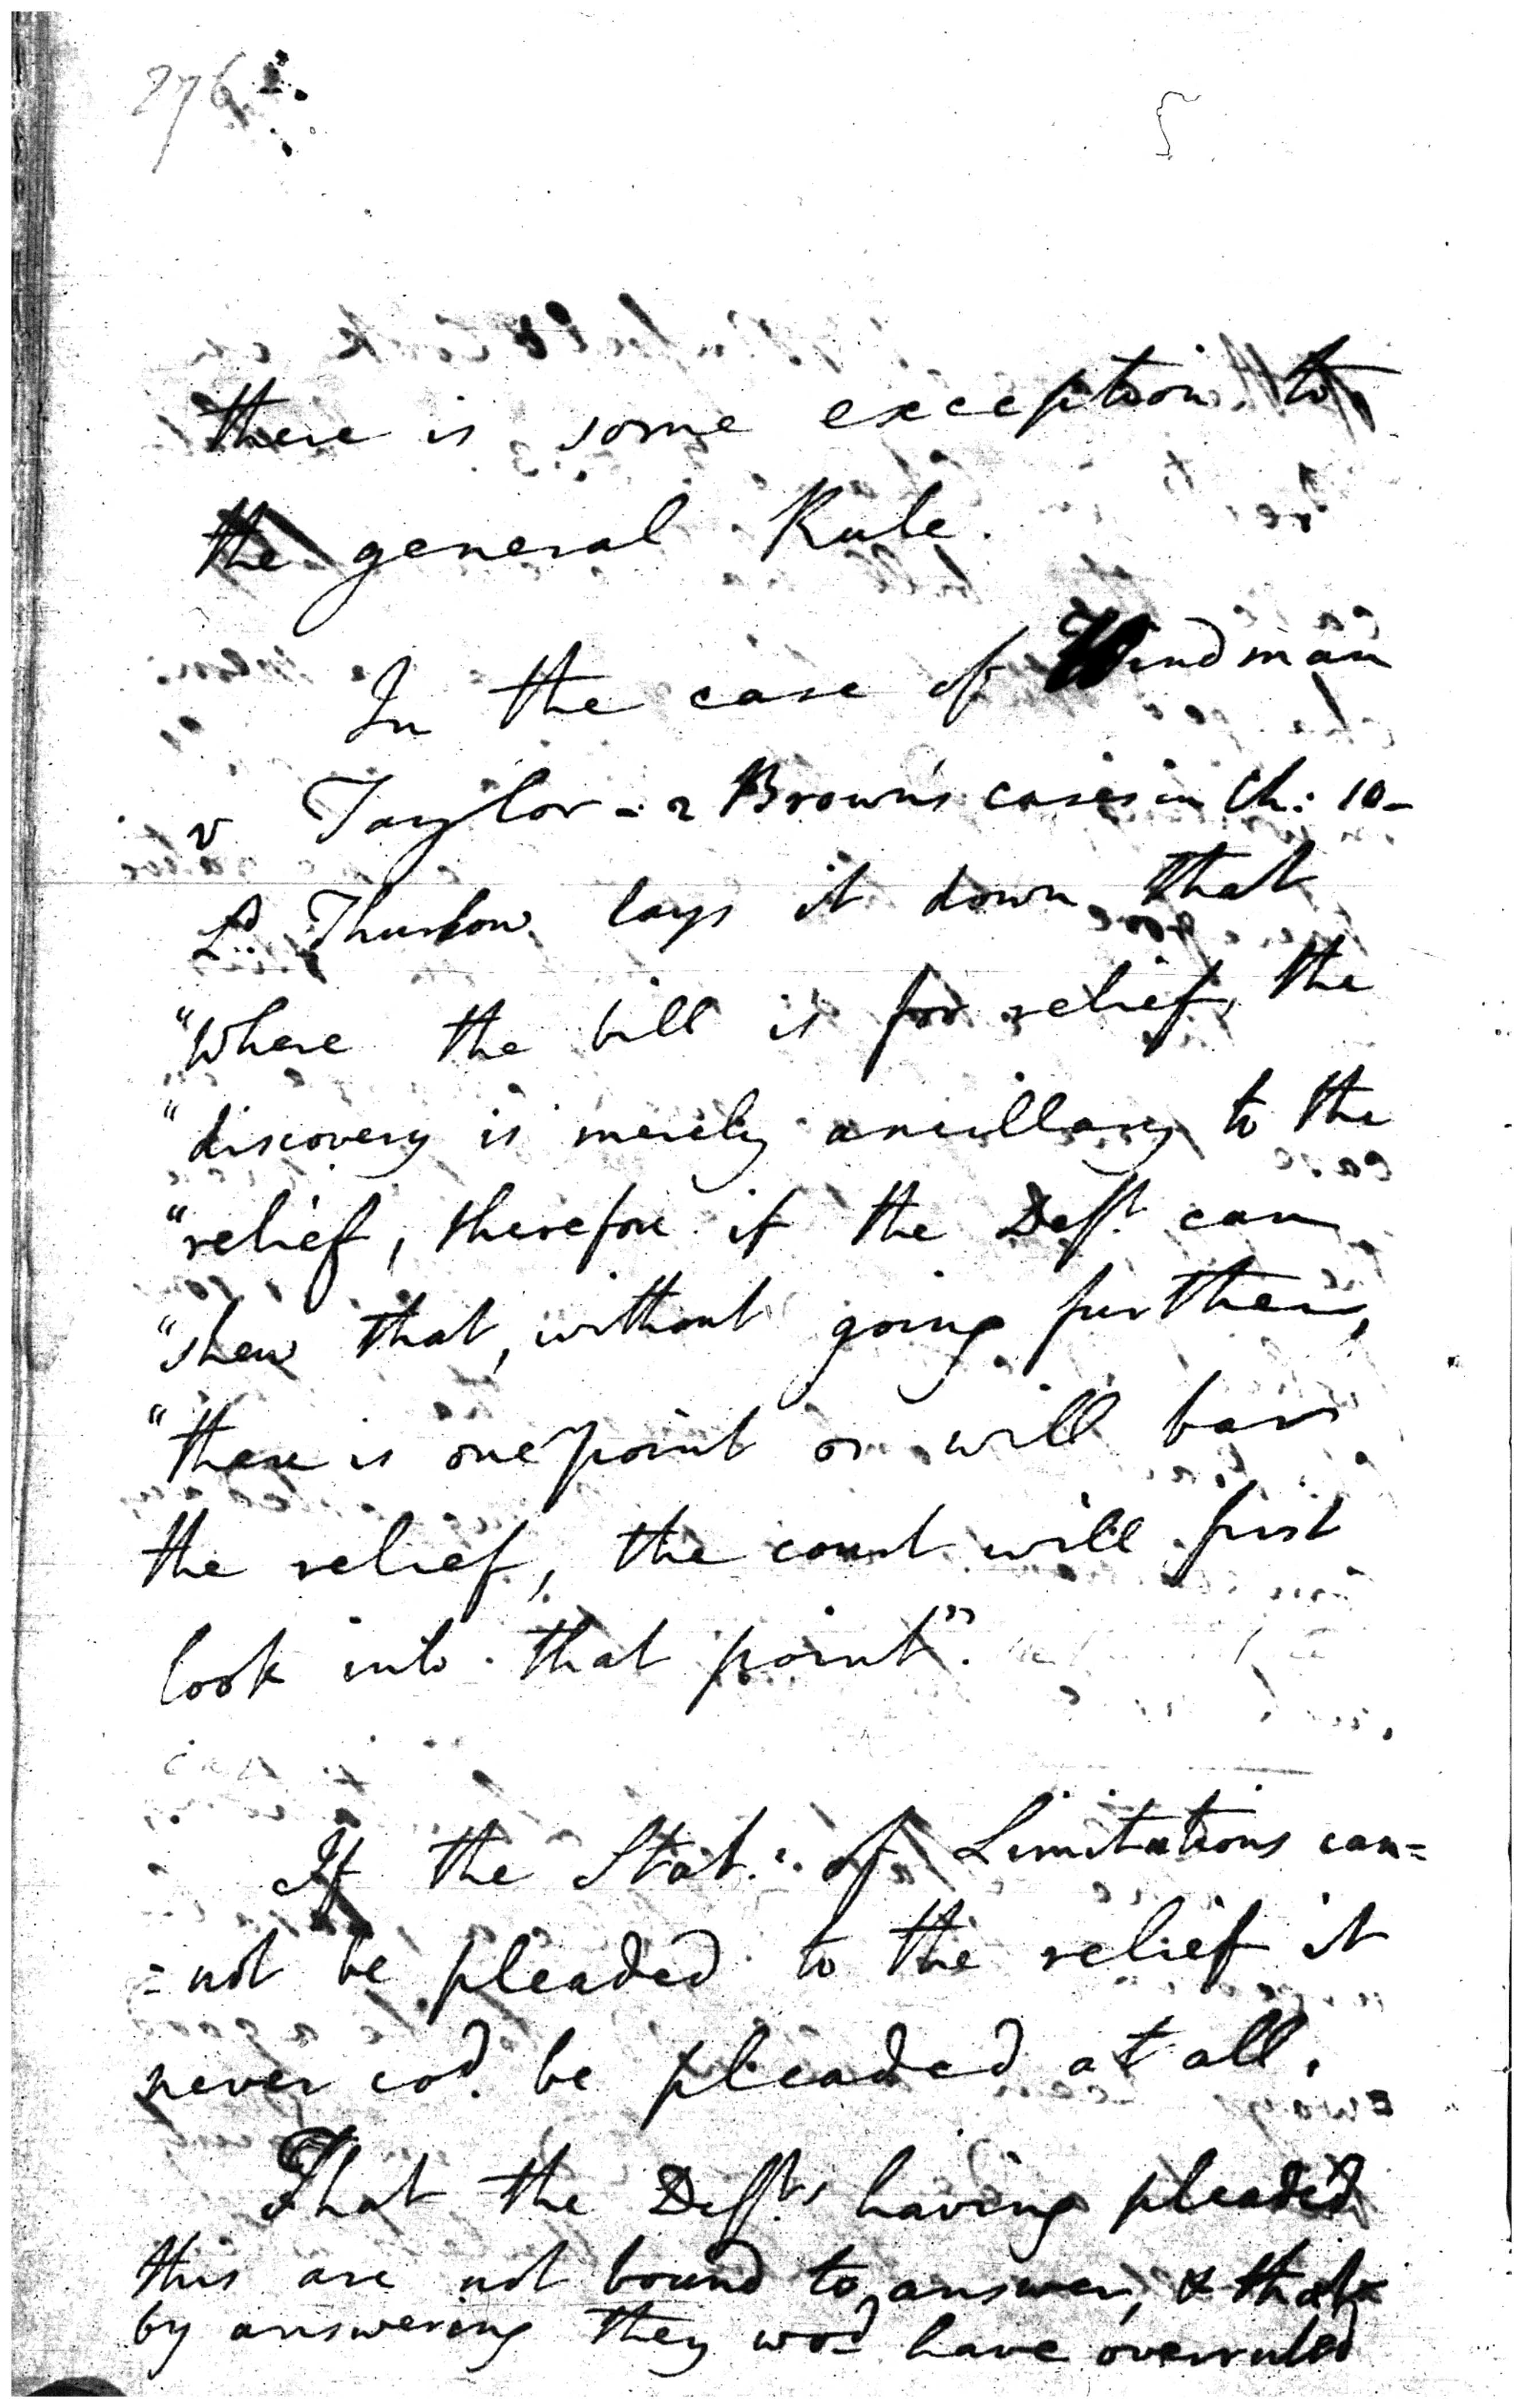 276
there is some exception to
the general Rule.
In the case of Hindman
v Taylor - 2 Brown's cases in Ch: 10-
Ld. Thurlow lays it down that
"Where the bill is for relief, the
"discovery is merely ancillary to the
"relief, therefore if the Deft. can
"shew that, without going further,
"there is one point on will bar
the relief, the court will first
look into that point".
If the Stat: of Limitations can=
=not be pleaded to the relief it
never cod. be pleaded at all.
That the Defts. having pleaded
this are not bound to answer, & that
by answering they wod have overruled